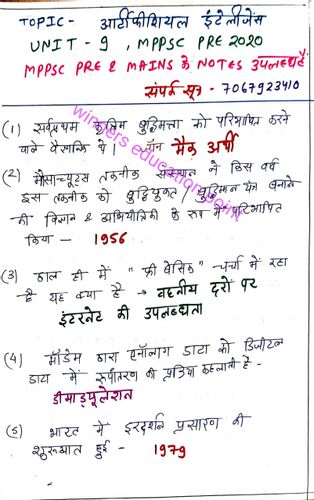 TOPIC- आर्टीफीशियल इंटेलीजेंस
UNIT - 9 , MPPSC PRE 2020
MPPSC PRE & MAINS के NOTES उपलब्ध हैं
संपर्क सूत्र - 7067923410
(1) सर्वप्रथम कृत्रिम बुद्धिमत्ता को परिभाषित करने
वाले वैज्ञानिक थे | जॉन मैक अर्थी
(2) मैसाच्यूट्स तकनीक संस्थान ने किस वर्ष
इस तकनीक को बुद्धियुक्त / बुद्धिमान यंत्र बनाने
की विज्ञान & अभियांत्रिकी के रूप में परिभाषित
किया - 1956
(3) हाल ही में "फ्री बेसिक" चर्चा में रहा
है यह क्या है → वहनीय दरों पर
इंटरनेट की उपलब्धता
(4) मॉडेम द्वारा एनॉलाग डाटा को डिजीटल
डाटा में रूपांतरण की प्रक्रिया कहलाती है -
डीमाड्यूलेशन
(5) भारत में इरदर्शन प्रसारण की
शुरूआत हुई - 1979
winners education